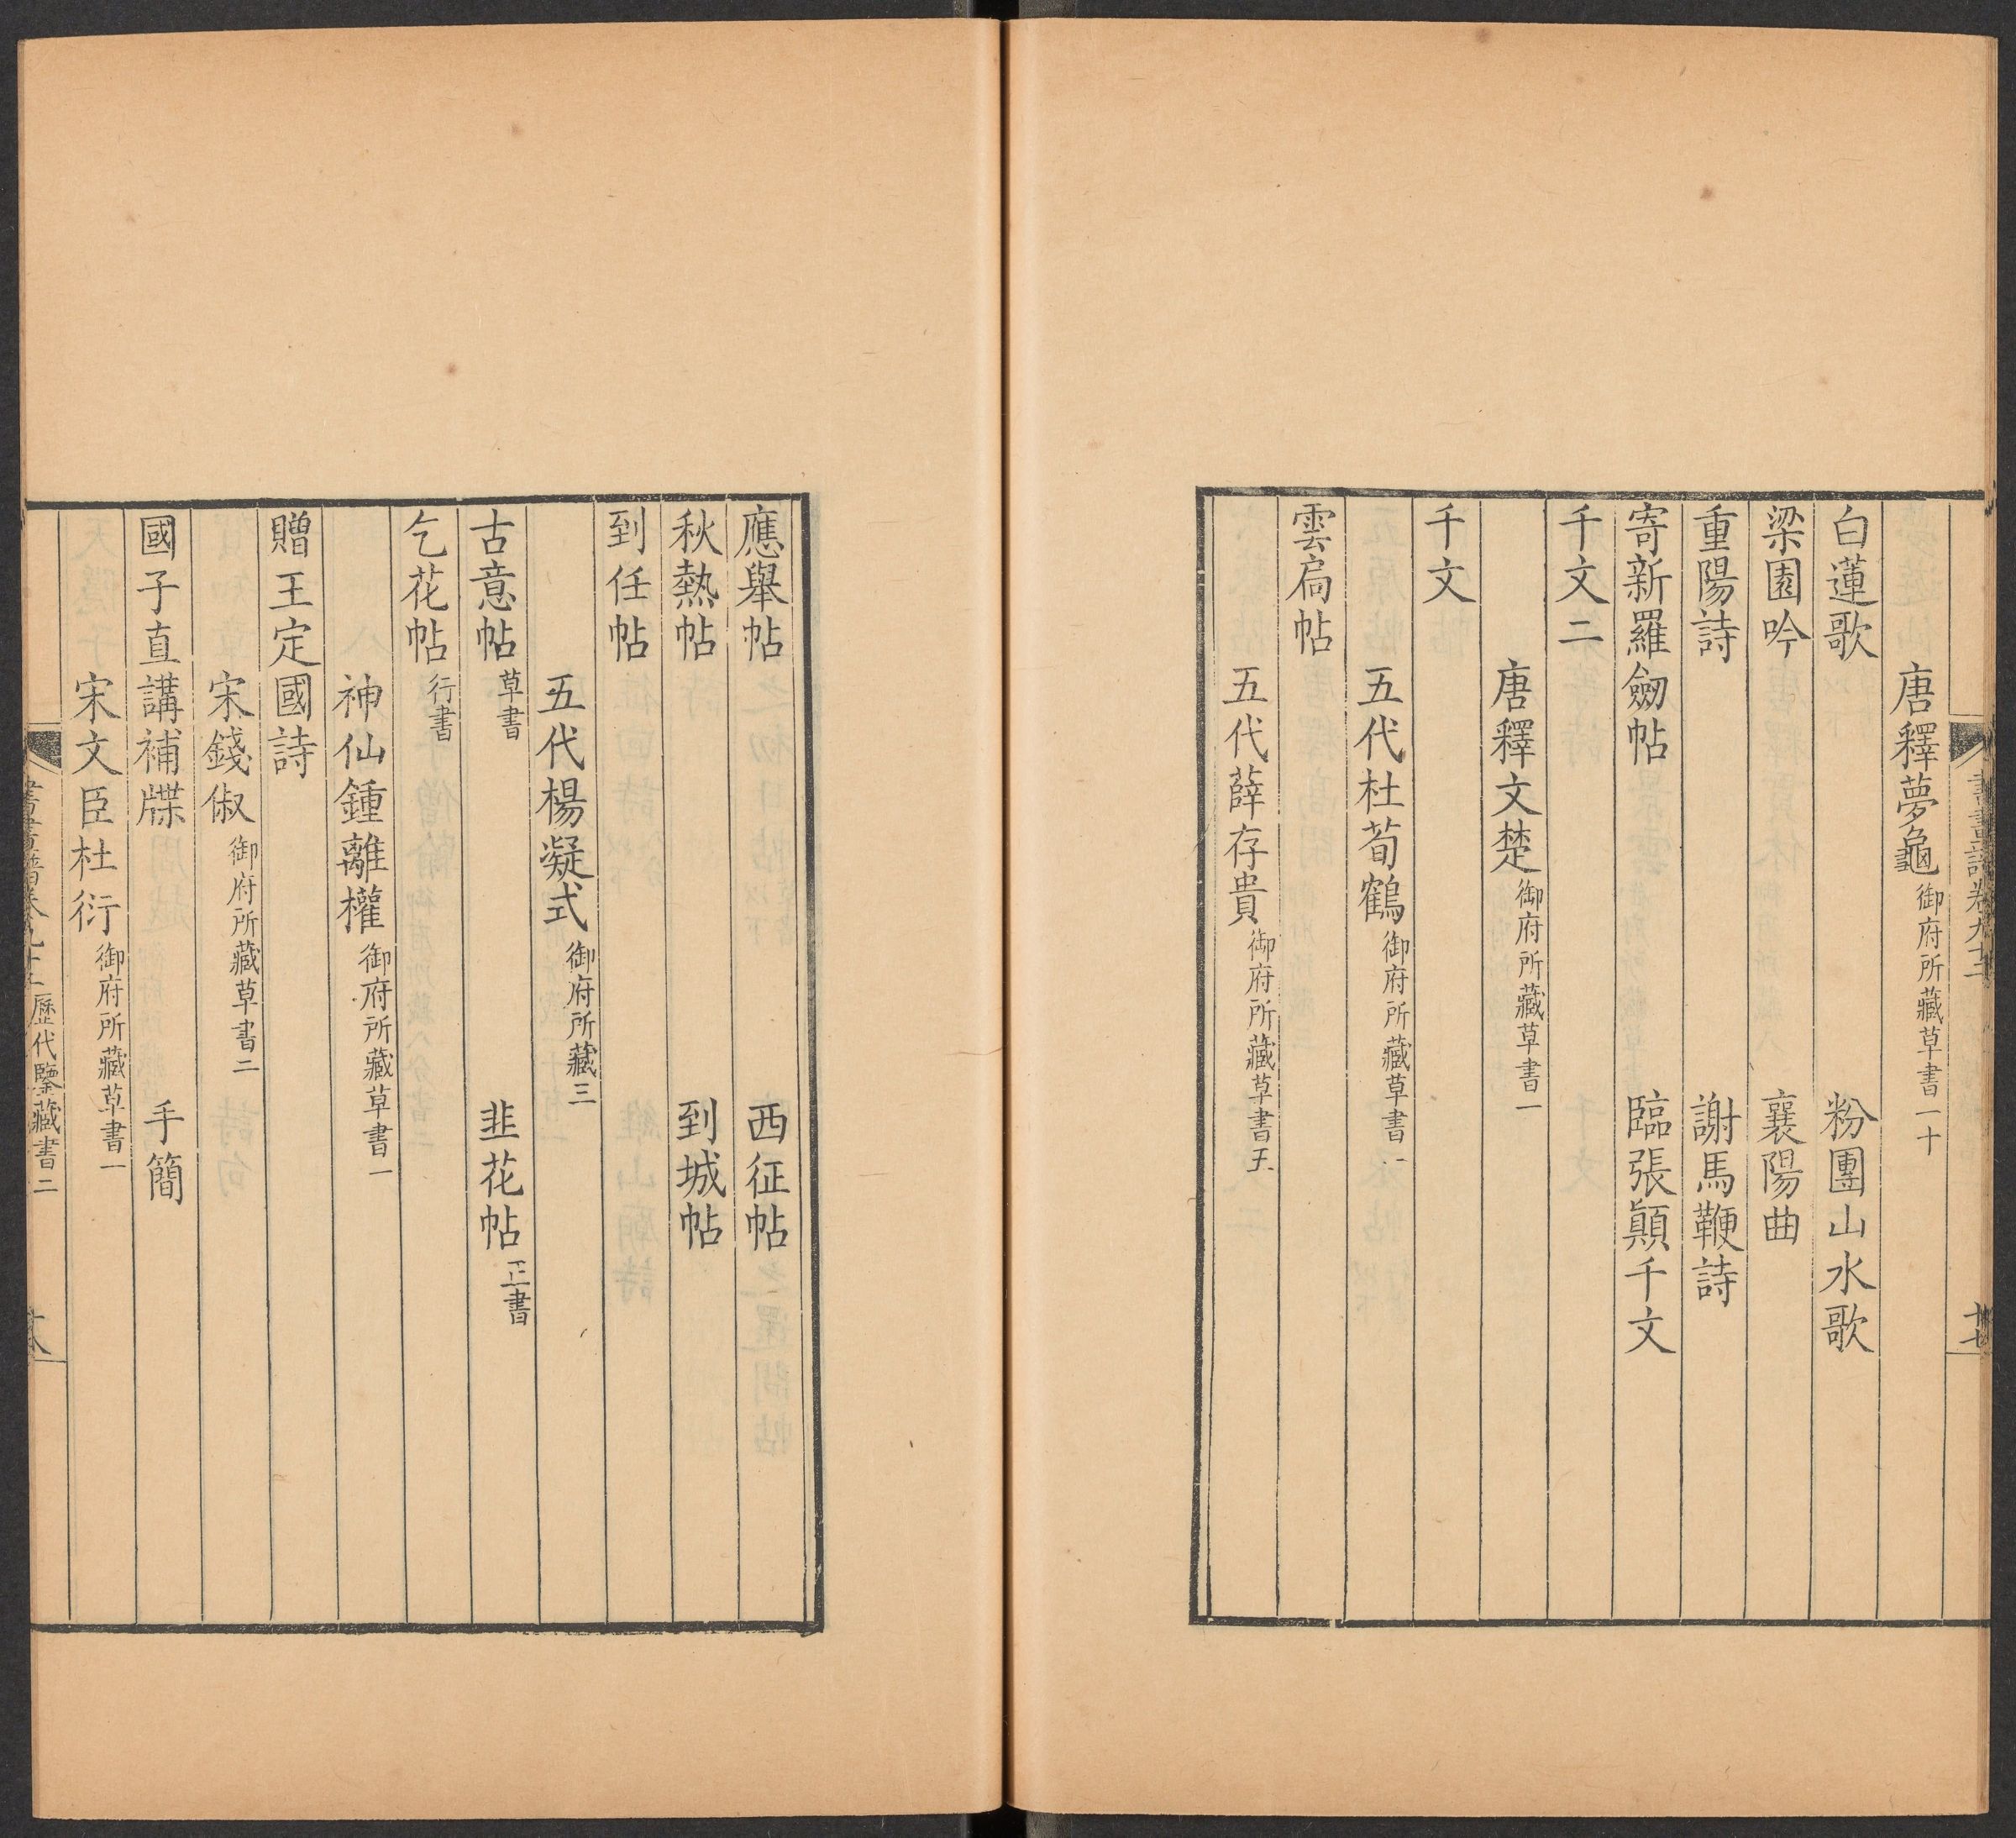 唐釋夢龜御府所藏草書一十
白蓮歌 粉團山水歌
梁園吟 襄陽曲
重陽詩 謝馬鞭詩
寄新羅劒帖 臨張顛千文
千文二
唐釋文楚御府所藏草書一
千文
五代杜荀鶴御府所藏草書一
雲扃帖
五代薛存貴御府所藏草書五
應舉帖 西征帖
秋熱帖 到城帖
到任帖
五代楊凝式御府所藏三
古意帖草書 韭花帖正書
乞花帖行書
神仙鍾離權御府所藏草書一
贈王定國詩
宋錢俶御府所藏草書二
國子直講補牒 手簡
宋文臣杜衍御府所藏草書一
歷代鑒藏書二